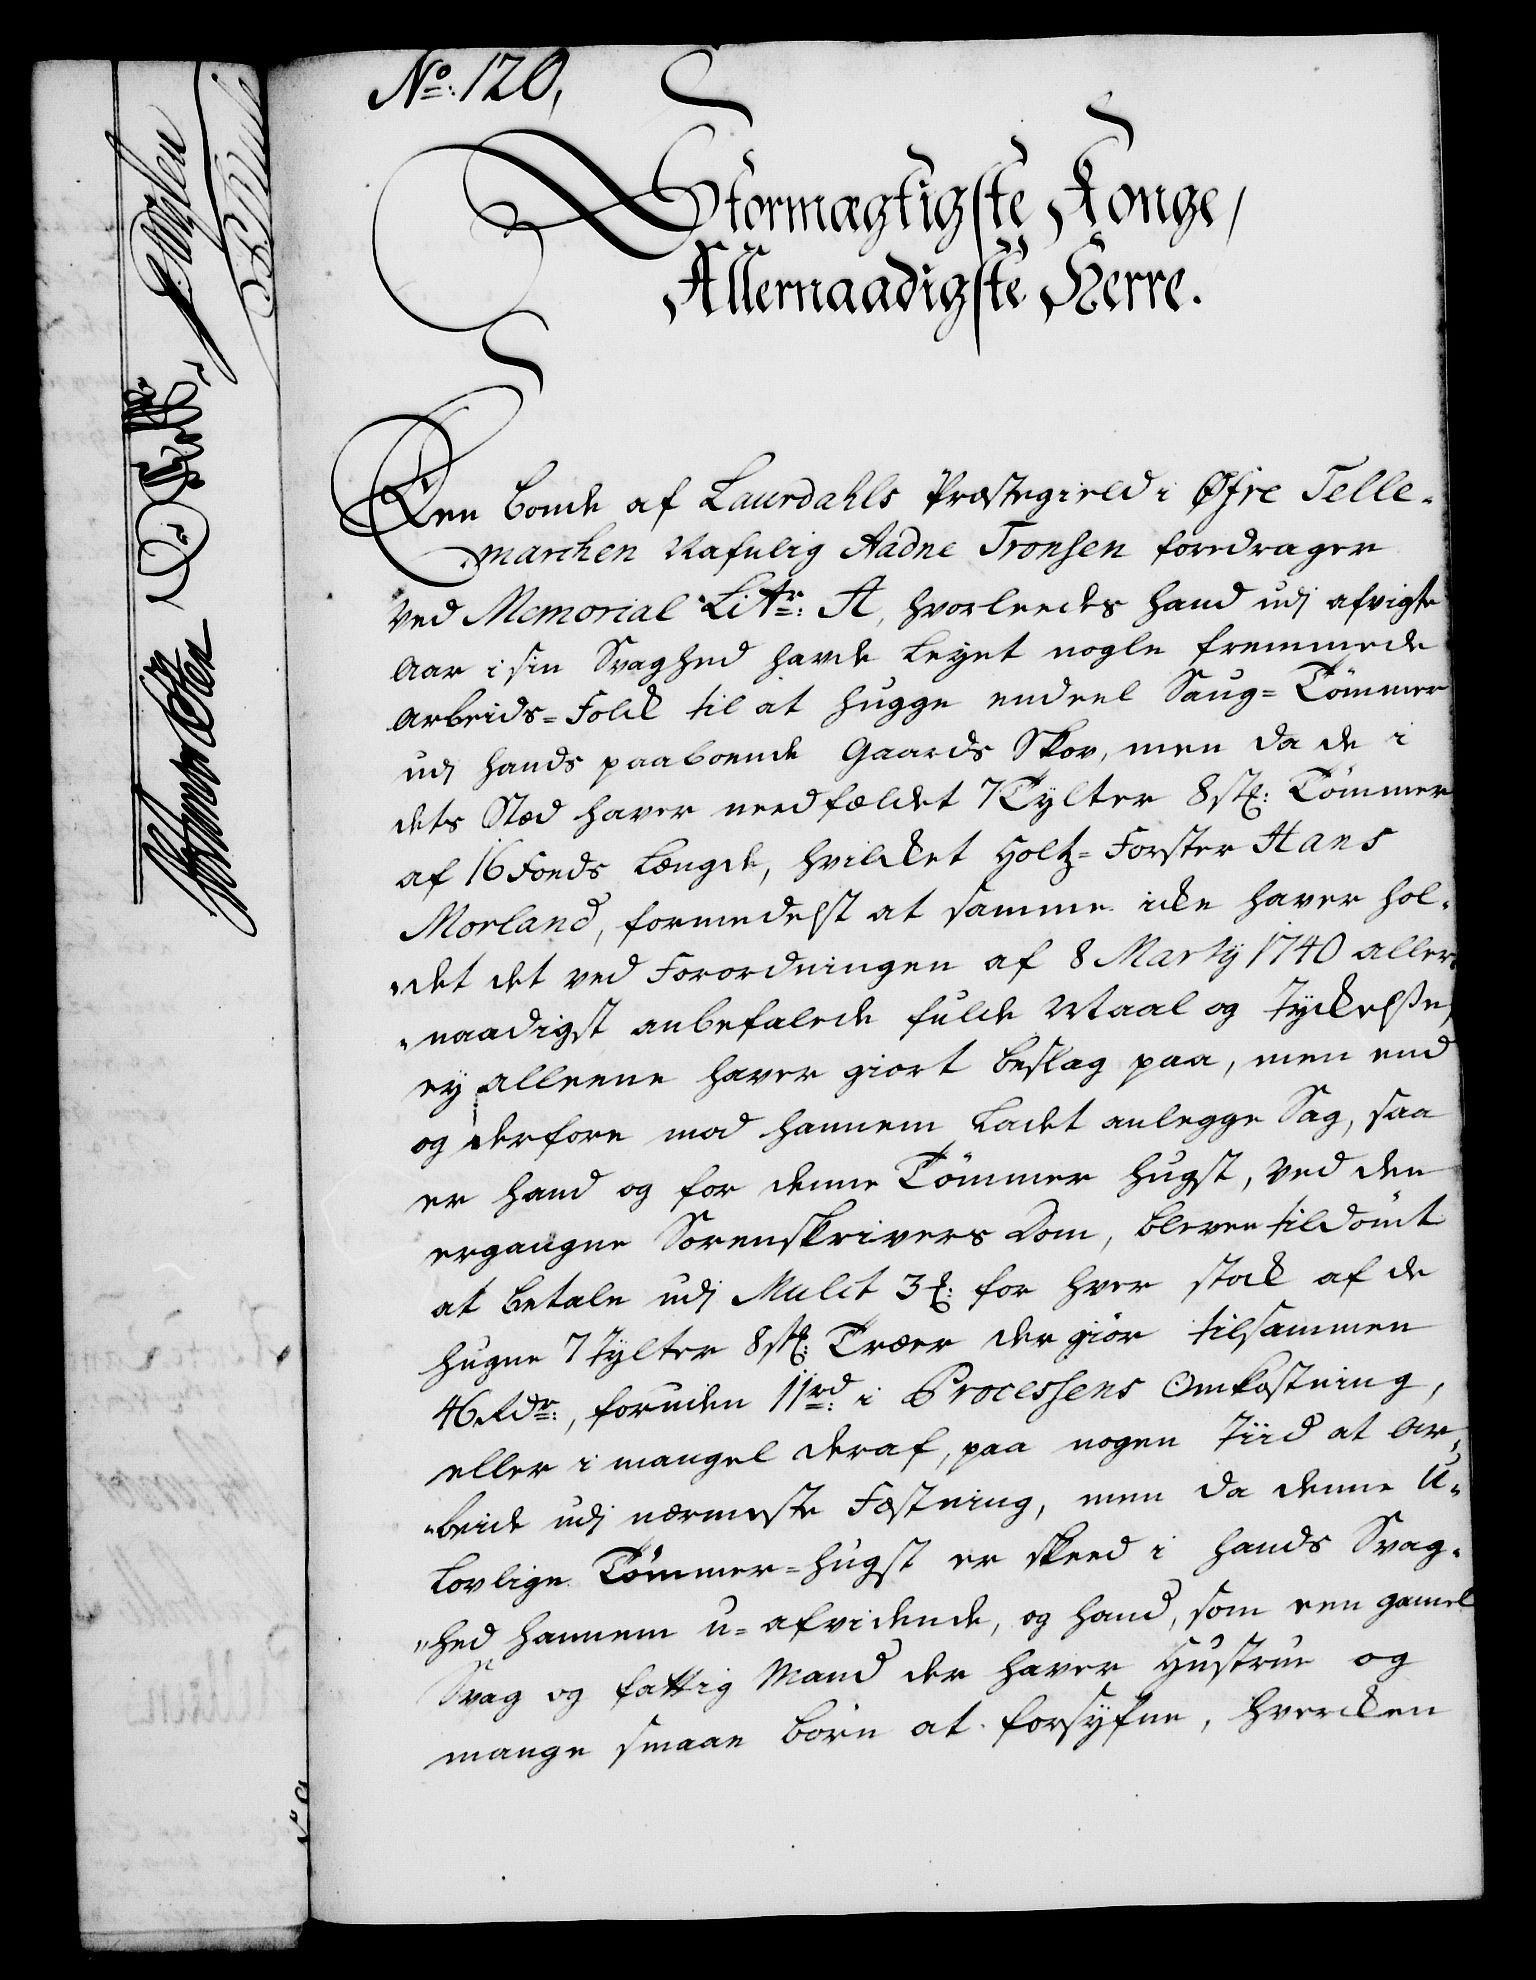 No: 120,
Stormægtigste Konge,
Allernaadigste Herre.
Een bonde af Laurdahls Præstegield i Øfre Telle-
marchen Nafnlig Aadne Tronsen foredrager
ved Memorial Litr: A, hvorleedes hand udj afvigte
Aar i sin Svaghed havde Leyet nogle fremmede
Arbeids-Folck til at hugge endeel Saug-Tömmer
udj hands paaboende Gaards Skov, men da de i
dets Sted haver needfældet 7 Tylter 8 st: Tömmer
af 16 Foeds Længde, hvilcket Holtz-Forster Hans
Morland, formedelst at samme icke haver hol-
det det ved Forordningen af 8 Marty 1740 aller-
naadigst anbefalede fulde Maal og Tyckelse,
ey alleene haver giort beslag paa, men end
og derfore mod hannem Ladet anlegge Sag, saa
er hand og for denne Tömmer Hugst, ved den
ergangne Sorenskrivers Dom, bleven tildömt
at betale udj Mulct 3 for hver stock af de
hugne 7 Tylter 8 st: Træer der giör tilsammen
46 Rdr:, foruden 11 rd: i Processens Omkostning,
eller i mangel deraf, paa nogen Tiid at Ar-
beide udj nærmeste Fæstning, men da denne U-
Lovlige Tömmer-Hugst er skeed i hands Svag-
hed hannem u-afvidende, og hand, som een gamel
Svag og fattig Mand der haver Hustrue og
mange smaae börn at forsyfne, hvercken